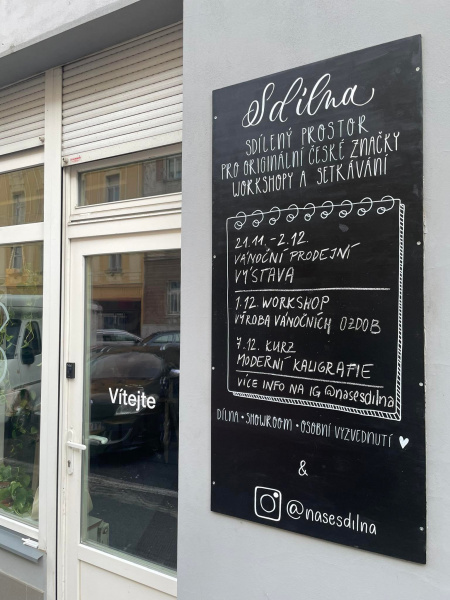 Sdílna
SDÍLENÝ PROSTOR
PRO ORIGINÁLNÍ ČESKÉ ZNAČKY
WORKSHOPY A SETKÁVÁNÍ
21.11. - 2.12.
VÁNOČNÍ PRODEJNÍ
VÝSTAVA
1.12. WORKSHOP
VÝROBA VÁNOČNÍCH OZDOB
7.12. KURZ
MODERNÍ KALIGRAFIE
VÍCE INFO NA IG @nasesdilna
DÍLNA • SHOWROOM • OSOBNÍ VYZVEDNUTÍ ♥
&
@nasesdilna
Vítejte